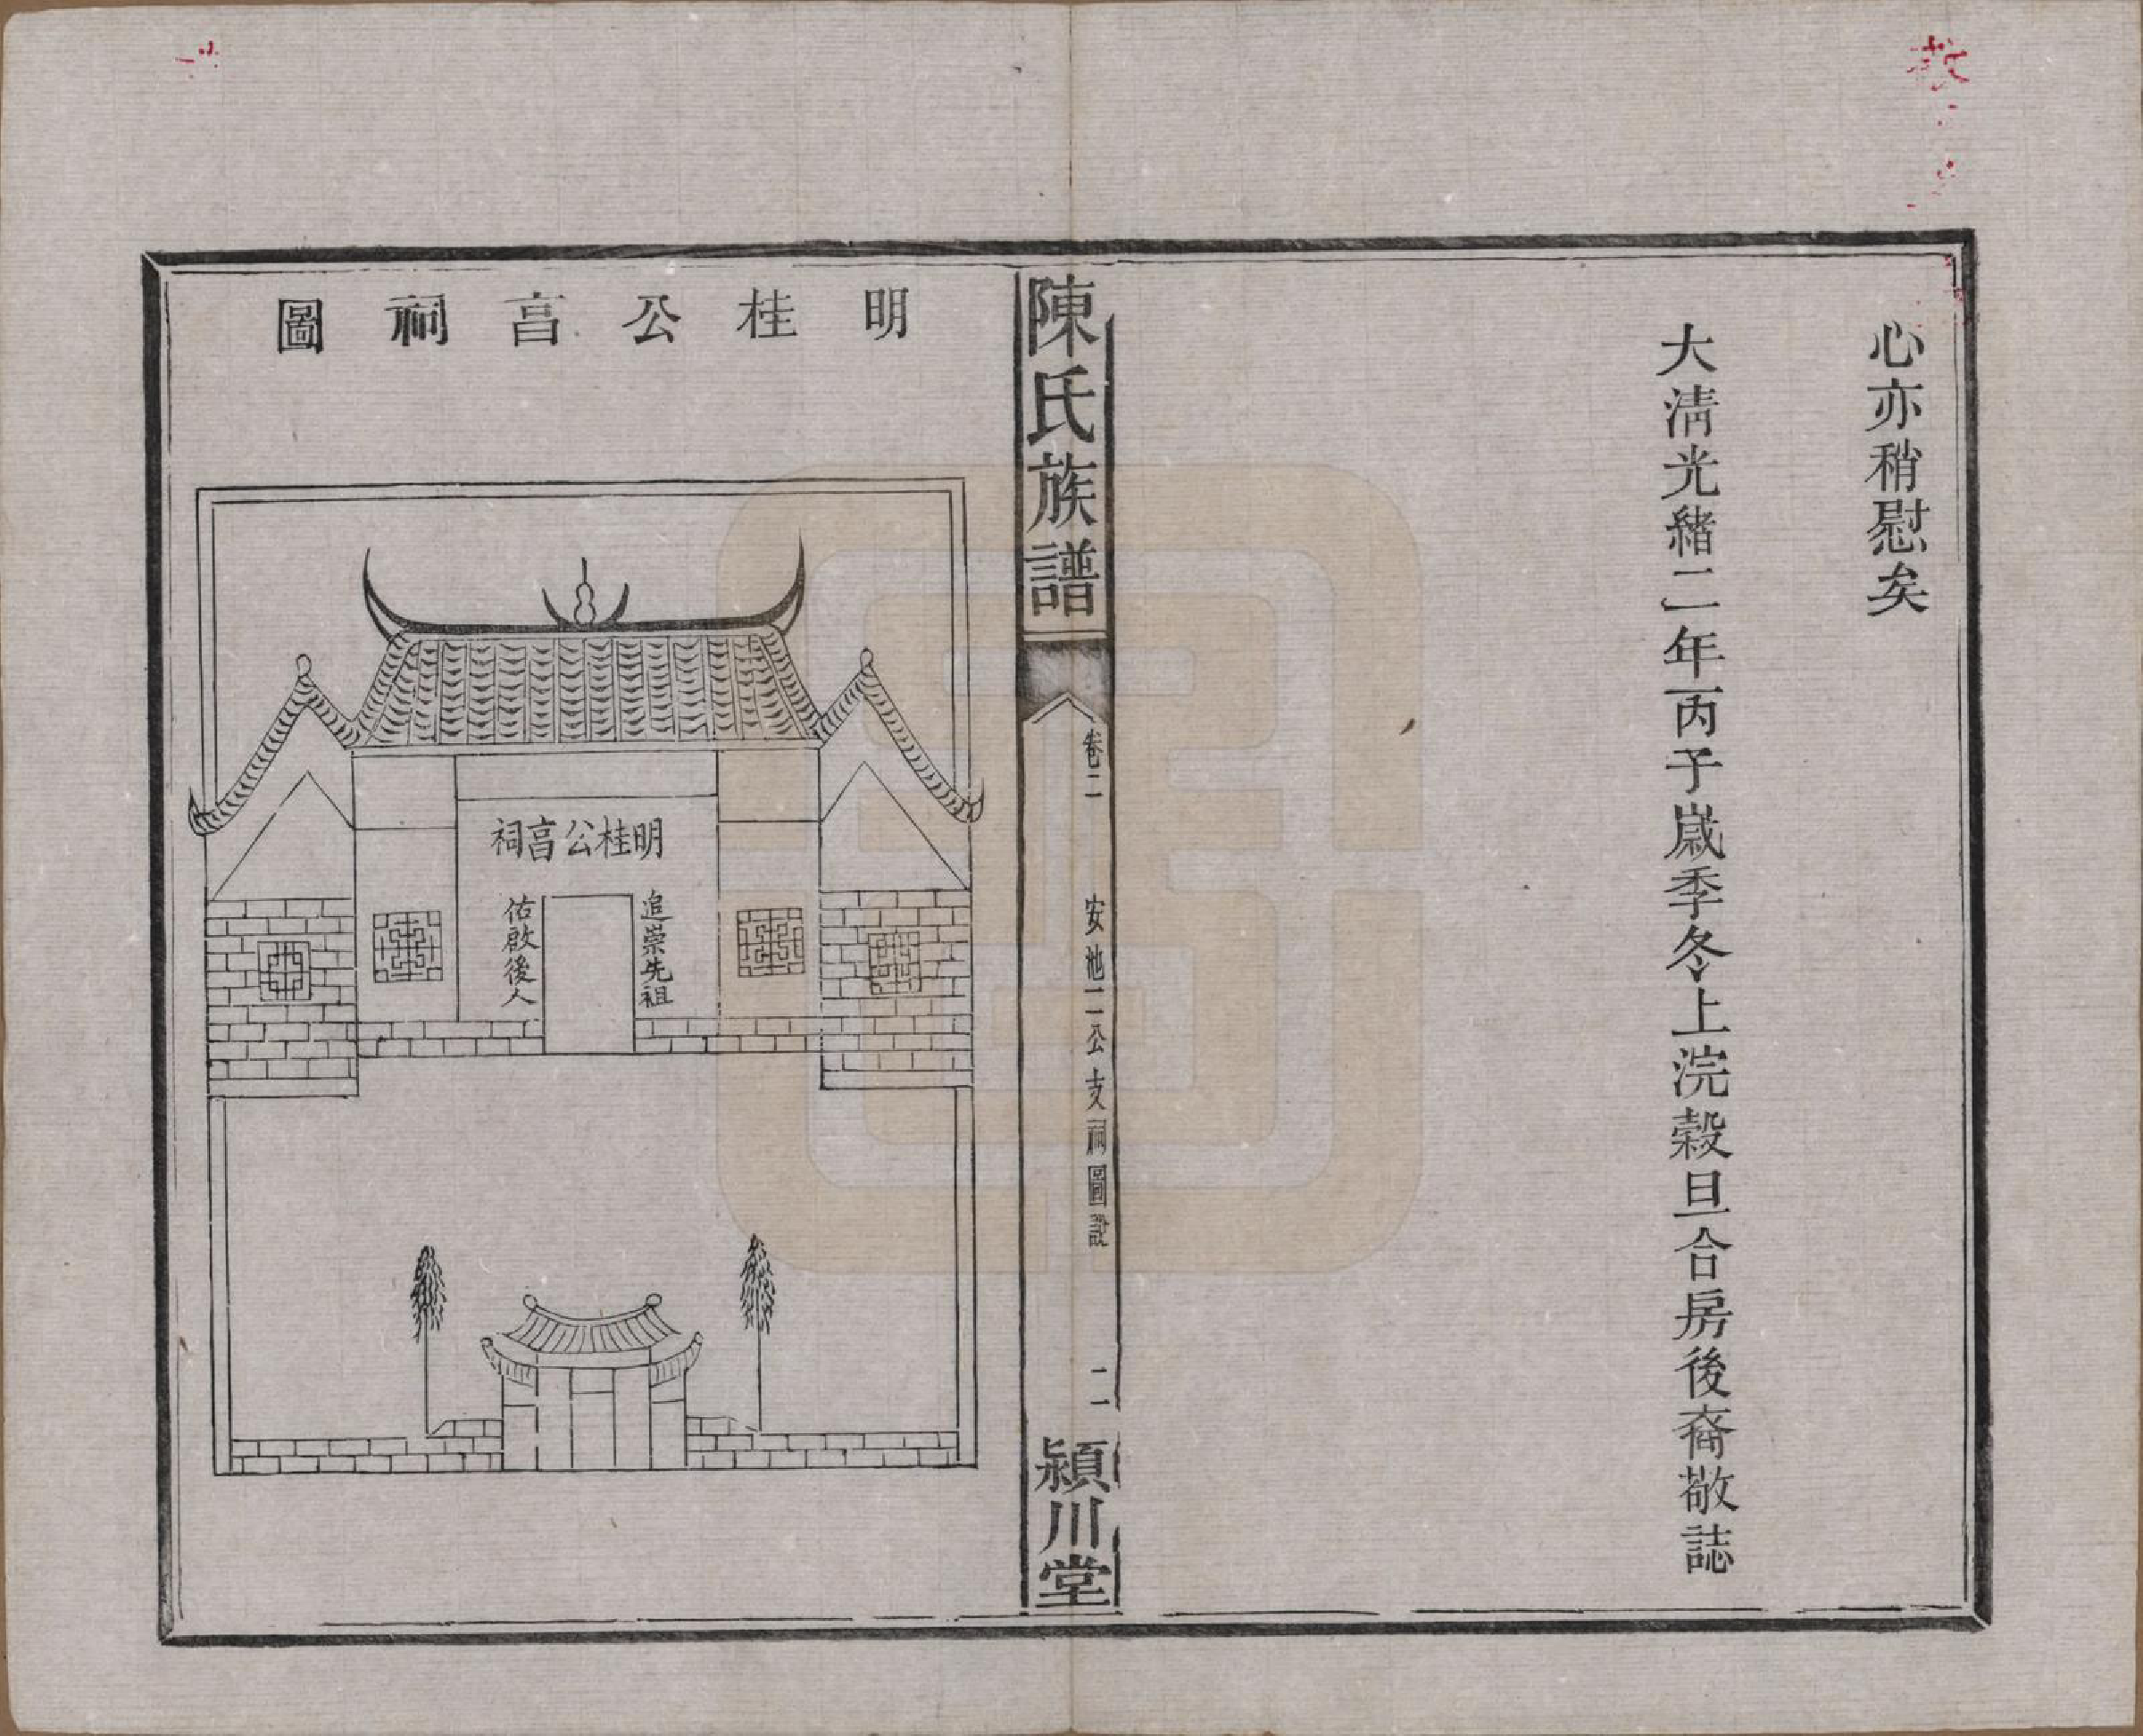 心亦稍慰矣
大淸光緒二年丙子嵗季冬上浣穀旦合房後裔敬誌
陳氏族譜
卷二
安池二公支祠圖說
二
潁川堂
明桂公亯祠圖
明桂公亯祠
追崇先祖
佑啟後人